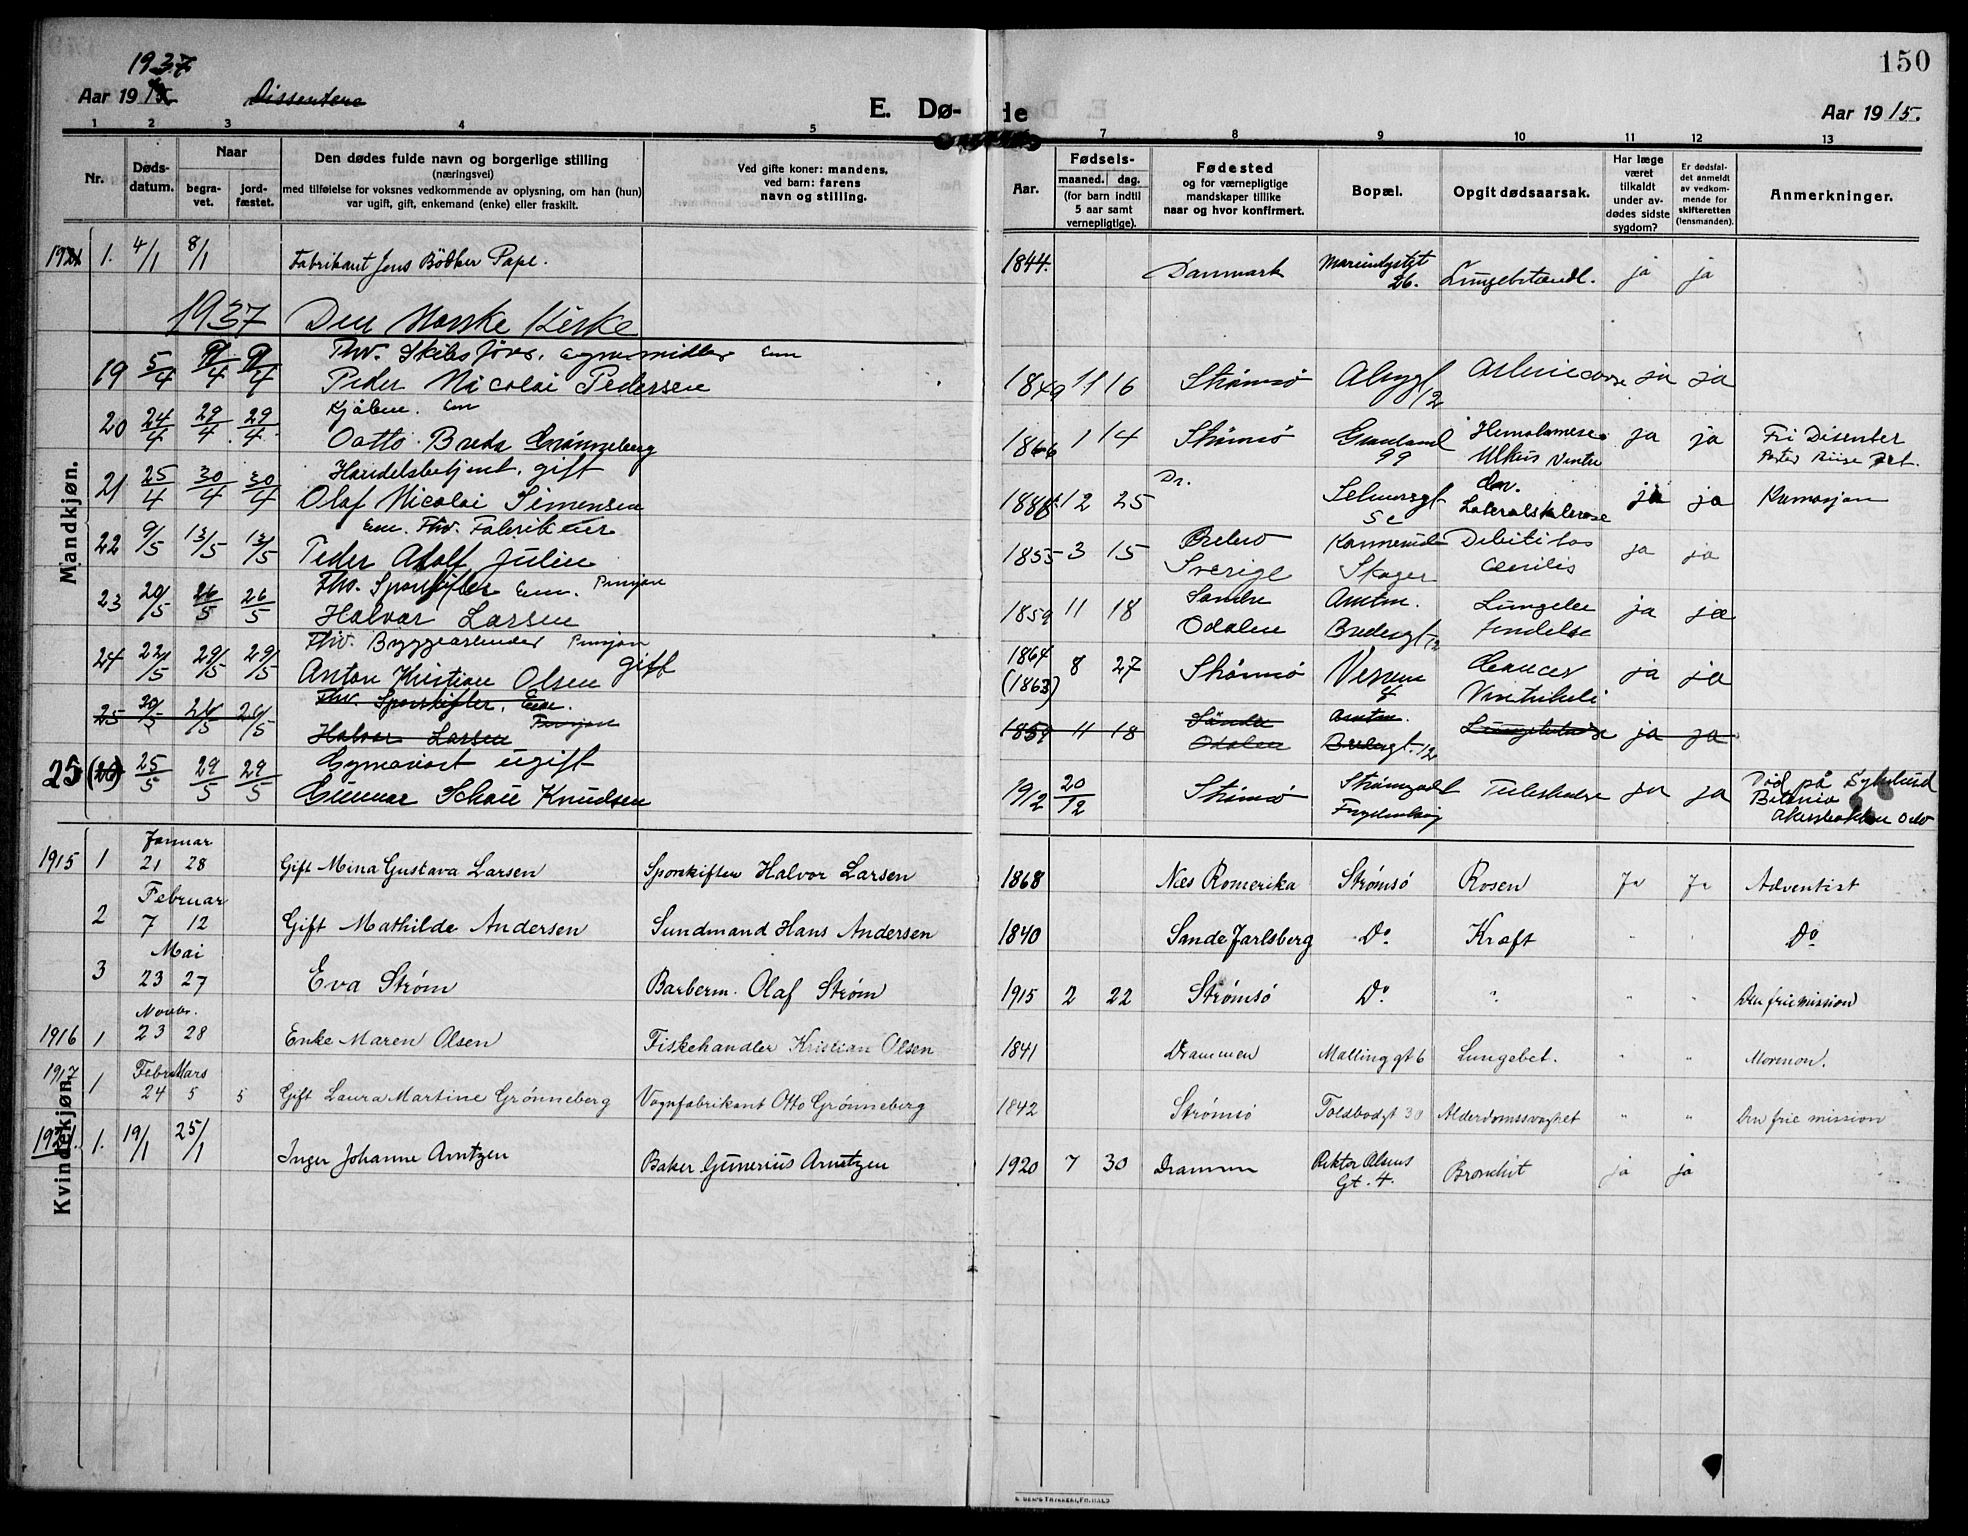 150
1937
Aar 1915. Dissentere E. Dø- de Aar 1915.
1 2 3 4 5 7 8 9 10 11 12 13
Nr. Døds-datum. Naar begra-vet. jord-fæstet.
Den dødes fulde navn og borgerlige stilling
(næringsvei)
med tilføielse for voksnes vedkommende av oplysning, om han (hun)
var ugift, gift, enkemand (enke) eller fraskilt.
Ved gifte koner: mandens,
ved barn: farens
navn og stilling.
Aar. Fødsels- maaned. dag.
(for barn indtil
5 aar samt
vernepligtige).
Fødested
og for værnepligtige
mandskaper tillike
naar og hvor konfirmert.
Bopæl. Opgit dødsaarsak.
Har læge
været
tilkaldt
under av-
dødes sidste
sygdom?
Er dødsfal-
det anmeldt
av vedkom-
mende for
skifteretten
(lensmanden).
Anmerkninger.
Mandkjøn.
1921 1. 4/1 8/1 Fabrikant Jens Bödker Pape. 1844. Danmark 26. Lungebetændl. ja ja
1937 Den Norske Kirke
Fhv. Skibsförer, Em
19 5/4 9/4 9/4 Peder Nicolai Pedersen 1849 11 16 Strømsö 12 ja ja
Em
20 24/4 29/4 29/4 Otto Breda Grønneberg 1866 1 14 Strømsö Grønland 99 Ulkus Ventri ja ja Fri Disenter
Handelsbetjent, gift
21 25/4 30/4 30/4 Olaf Nicolai Simensen 1888 12 25 Dr. Selmersgt 5c ja ja Kremasjon
Em. Fhv. Fabrikeier
22 9/5 13/5 13/5 Peder Adolf Julin 1855 3 15 Örebro Sverige Konnerud Skoger Debilitas senilis ja ja
Fhv. Sporskifter Em. Pensjon
23 20/5 26/5 26/5 Halvor Larsen 1859 11 18 Søndre Odalen Amtm. Bredesgt 12 Lungebetendelse ja ja
Fhv. Byggearbeider Pensjon
24 22/5 29/5 29/5 Anton Kristian Olsen gift 1864 (1863) 8 27 Strømsö Cancer Ventrikuli ja ja
Fhv. Sporskifter, Em. Pensjon
25 20/5 26/5 26/5 Halvor Larsen 1859 11 18 Söndre Odalen Amtm. Bredesgt. 12 ja ja
Gymnasiast ugift
25 (26) 25/5 29/5 29/5 Gunnar Schou Knudsen 1912 20/12 Strömsö Tuberkulose ja ja Død på Betania Akersbakken Oslo
Kvindekjøn.
Januar
1915 1 21 28 Gift Mina Gustava Larsen Sporskifter Halvor Larsen 1868 Næs Romerike Strømsö Rosen Ja Ja Adventist
Februar
2 7 12 Gift Mathilde Andersen Sundmand Hans Andersen 1840 Sande Jarlsberg Do. Kræft " " Do
Mai
3 23 27 Eva Strøm Barberm. Olaf Strøm 1915 2 22 Strømsö Do. " " " Den frie mission
Novbr.
1916 1 23 28 Enke Maren Olsen Fiskehandler Kristian Olsen 1841 Drammen Malling gt 6 Lungebet. " " Mormon.
Febr Mars
1917 1 24 5 5 Gift Laura Martine Grønneberg Vognfabrikant Otto Grønneberg 1842 Strømsö Toldbodgt 30 Alderdomssvaghet " " Den frie mission
1921. 1. 19/1 25/1 Inger Johanne Arntzen Baker Gunerius Arntzen 1920 7 30 Drammen Rektor Olsens Gt. 4. Bronchit ja ja